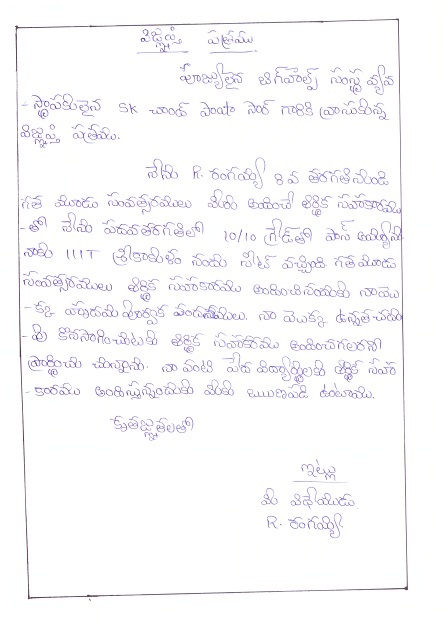 విజ్ఞప్తి పత్రము
పూజ్యులైన బిగ్‌హెల్ప్ సంస్థ వ్యవ
- స్థాపకులైన SK చాంద్ పాషా సార్ గారికి వ్రాసుకున్న
విజ్ఞప్తి పత్రము.
నేను R. రంగయ్య 8 వ తరగతి నుండి
గత మూడు సంవత్సరములు మీరు అందించే ఆర్థిక సహకారము
- తో నేను పదవతరగతిలో 10/10 గ్రేడ్‌తో పాస్ అయ్యాను
నాకు IIIT శ్రీకాకుళం నందు సీట్ వచ్చింది గత మూడు
సంవత్సరములు ఆర్థిక సహకారము అందించినందుకు నాయొ
- క్క హృదయ పూర్వక వందనములు. నా యొక్క ఉన్నత చదువు
- ను కొనసాగించుటకు ఆర్థిక సహకారము అందించగలరని
ప్రార్థించు చున్నాను. నా వంటి పేద విద్యార్థులకు ఆర్థిక సహ
- కారము అందిస్తున్నందుకు మీకు ఋణపడి ఉంటాము.
కృతజ్ఞతలతో
ఇట్లు
మీ విధేయుడు
R. రంగయ్య.